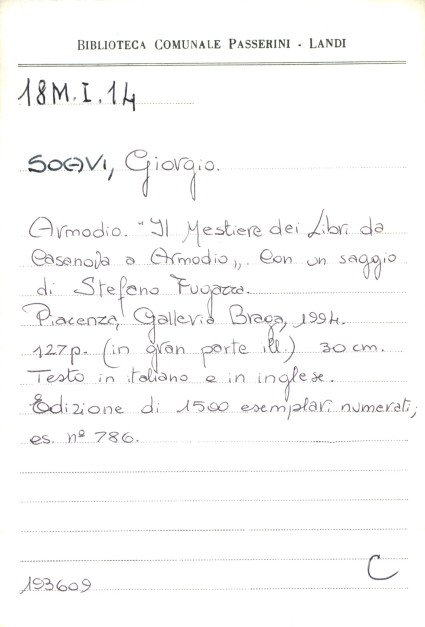 BIBLIOTECA COMUNALE PASSERINI - LANDI
18M.I.14
SOAVI, Giorgio.
Armodio. "Il Mestiere dei Libri da
Casanova a Armodio". Con un saggio
di Stefano Fugazza.
Piacenza, Galleria Braga, 1994.
127p. (in gran parte ill.) 30 cm.
Testo in italiano e in inglese.
Edizione di 1500 esemplari numerati;
es. nº 786.
C
193609